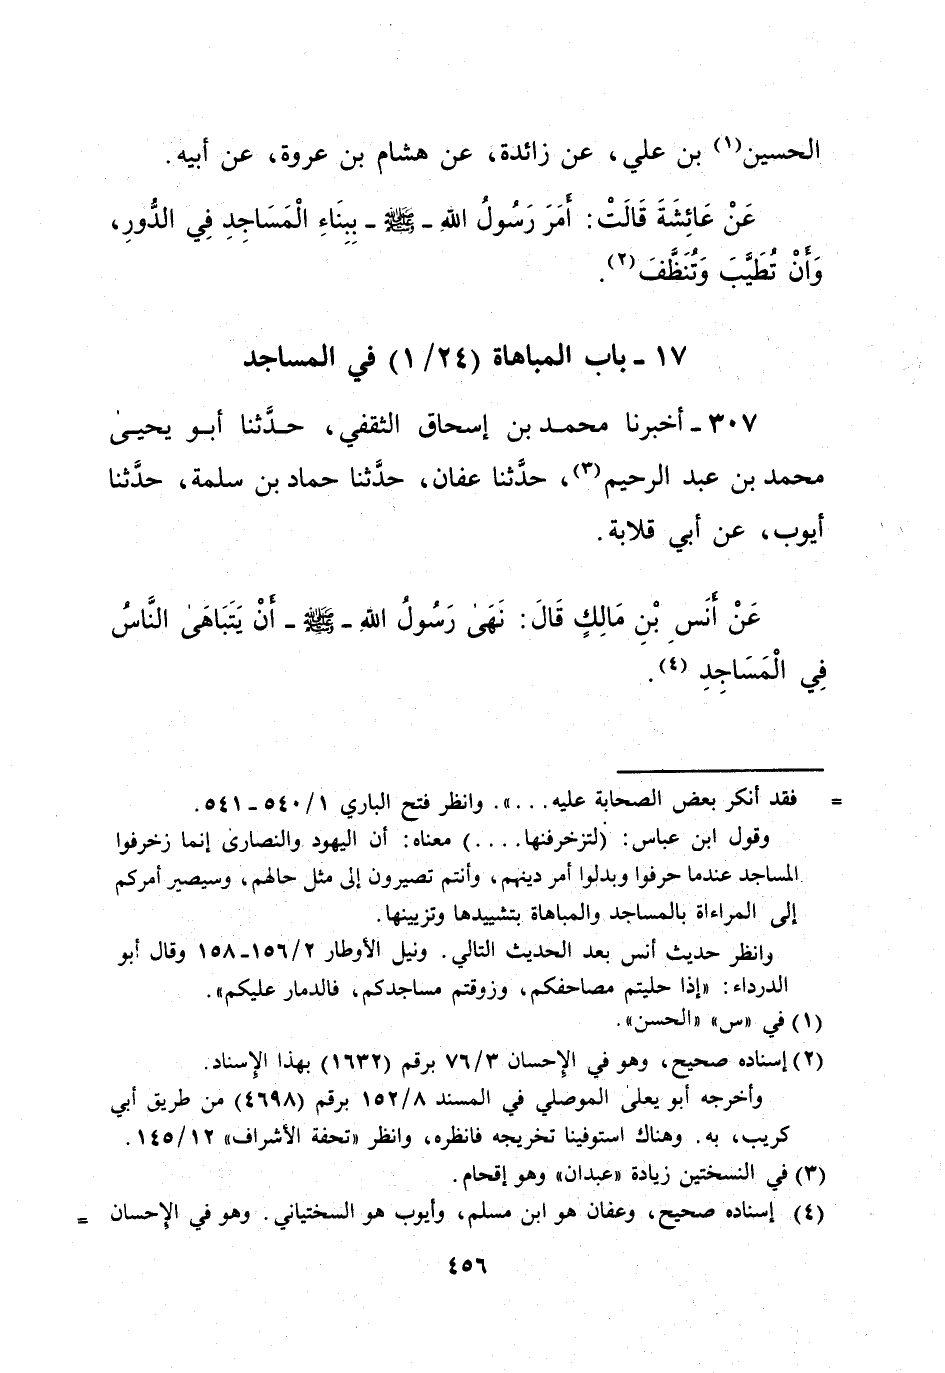 الحسين(١) بن علي، عن زائدة، عن هشام بن عروة، عن أبيه.
عَنْ عَائِشَةَ قَالَتْ: أَمَرَ رَسُولُ اللهِ ـ ﷺ ـ بِبِنَاءِ الْمَسَاجِدِ فِي الدُّورِ،
وَأَنْ تُطَيَّبَ وَتُنَظَّفَ(٢).
١٧ ـ باب المباهاة (١/٢٤) في المساجد
٣٠٧ ـ أخبرنا محمد بن إسحاق الثقفي، حدَّثنا أبو يحيىٰ
محمد بن عبد الرحيم(٣)، حدَّثنا عفان، حدَّثنا حماد بن سلمة، حدَّثنا
أيوب، عن أبي قلابة.
عَنْ أَنَسِ بْنِ مَالِكٍ قَالَ: نَهَىٰ رَسُولُ اللهِ ـ ﷺ ـ أَنْ يَتَبَاهَىٰ النَّاسُ
فِي الْمَسَاجِدِ (٤).
= فقد أنكر بعض الصحابة عليه...». وانظر فتح الباري ١/ ٥٤٠ ـ ٥٤١.
وقول ابن عباس: (لتزخرفنها....) معناه: أن اليهود والنصارىٰ إنما زخرفوا
المساجد عندما حرفوا وبدلوا أمر دينهم، وأنتم تصيرون إلى مثل حالهم، وسيصير أمركم
إلى المراءاة بالمساجد والمباهاة بتشييدها وتزيينها.
وانظر حديث أنس بعد الحديث التالي. ونيل الأوطار ٢/ ١٥٦ـ ١٥٨ وقال أبو
الدرداء: «إذا حليتم مصاحفكم، وزوقتم مساجدكم، فالدمار عليكم».
(١) في «س» «الحسن».
(٢) إسناده صحيح، وهو في الإحسان ٣/ ٧٦ برقم (١٦٣٢) بهذا الإسناد.
وأخرجه أبو يعلىٰ الموصلي في المسند ٨/ ١٥٢ برقم (٤٦٩٨) من طريق أبي
كريب، به. وهناك استوفينا تخريجه فانظره، وانظر «تحفة الأشراف» ١٢/ ١٤٥.
(٣) في النسختين زيادة «عبدان» وهو إقحام.
(٤) إسناده صحيح، وعفان هو ابن مسلم، وأيوب هو السختياني. وهو في الإحسان =
٤٥٦